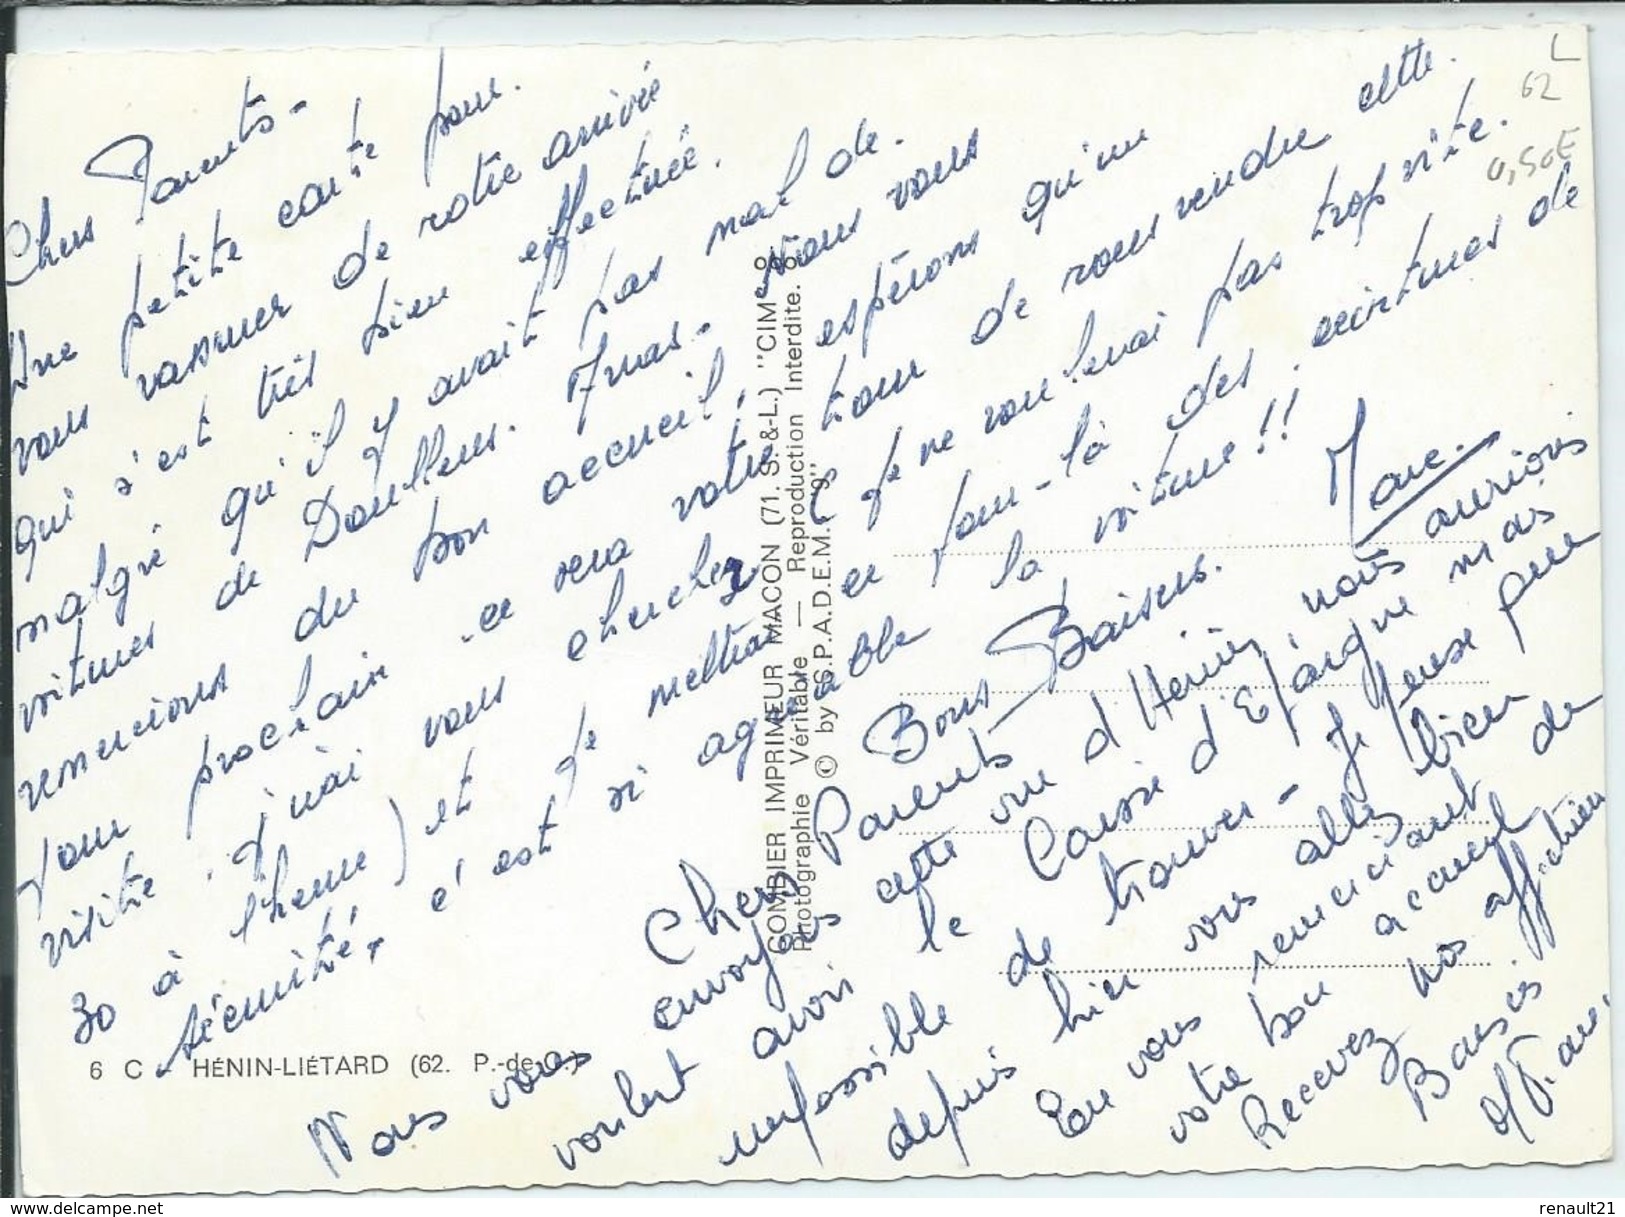 Chers Parents -
Une petite carte pour.
vous rassurer de notre arrivée
qui s'est très bien effectuée.
malgré qu'il y avait pas mal de.
voitures de Doullens. Arras - Nous vous
remercions du bon accueil, espérons qu'un
jour prochain ce sera votre tour de nous rendre cette.
visite, j'irai vous chercher (je ne roulerai pas trop vite.
30 à l'heure) et je mettrai ce jour-là des ceintures de
sécurité, c'est si agréable la voiture!!
Bons Baisers. Marc.
Chers Parents
Nous vous envoyons cette vue d'Hénin, nous aurions
voulut avoir le Caisse d'Epargne mais
impossible de trouver - Je pense que
depuis hier vous allez bien
En vous remerciant de
votre bon accueil
Recevez nos affectueux
Baisers
6 C - HÉNIN-LIÉTARD (62. P.-de-C.)
COMBIER IMPRIMEUR MACON (71. S.-&-L.) "CIM"
Photographie Véritable — Reproduction Interdite.
© by "S.P.A.D.E.M. 19"
L
62
0,50E
renault21